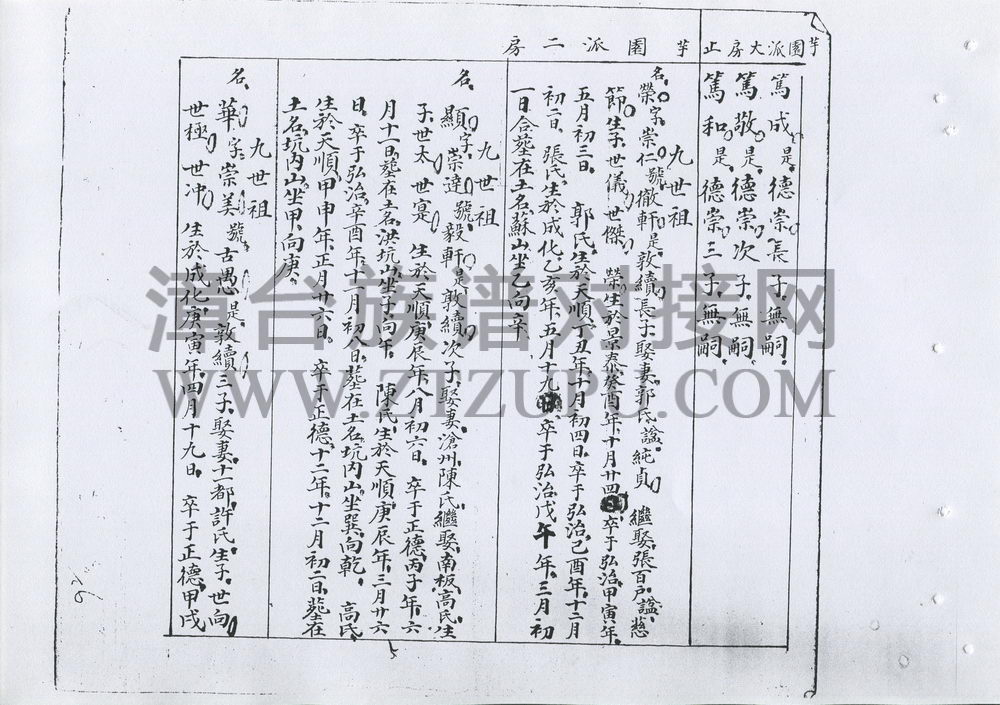 芋園派大房止
篤成是德崇長子無嗣
篤敬是德崇次子無嗣
篤和是德崇三子無嗣
芋園派二房
九世祖
名榮字崇仁號徹軒是敦續長子娶妻郭氏諡純貞 繼娶張百戶諡慈
節生子世儀 世傑 榮生於景泰癸酉年十月廿四 卒于弘治甲寅年
五月初三日 郭氏生於天順丁丑年十月初四日卒于弘治己酉年十二月
初二日 張氏生於成化乙亥年五月十九 卒于弘治戊午年三月初
一日合塟在土名蘇山坐乙向辛
九世祖
名顯字崇達號毅軒是敦續次子娶妻滄州陳氏繼娶南板高氏生
子世太 世寔 生於天順庚辰年八月初六日 卒于正德丙子年六
月十一日塟在土名洪坑山坐子向午 陳氏生於天順庚辰年三月廿六
日卒于弘治辛酉年十一月初八日塟在土名坑內山坐巽向乾 高氏
生於天順甲申年正月廿六日 卒于正德十二年十二月初二日塟在
土名坑內山坐甲向庚
九世祖
名華字崇美號古愚是敦續三子娶妻十一都許氏生子世向
世極 世冲 生於成化庚寅年四月十九日 卒于正德甲戌
5
漳台族谱对接网
WWW.ZTZUPU.COM